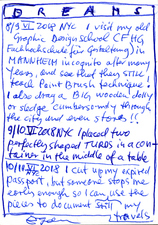 DREAMS
8/9 VI 2018 NYC I visit my old
Graphic Design School CF HG
Fachhochschule für Gestaltung in
MANNHEIM incognito after many
years, and see that they STILL
teach Paint Brush technique!
I also drag a BIG wooden dolly
or sledge cumbersomely through
the city and even stores!!
9/10 VI 2018 NYC I placed two
perfectly shaped TURDS in a con-
tainer in the middle of a table.
10/11 VI 2018 I cut up my expired
passport, but someone stops me
early enough so I can use the
pieces to document still my
travels